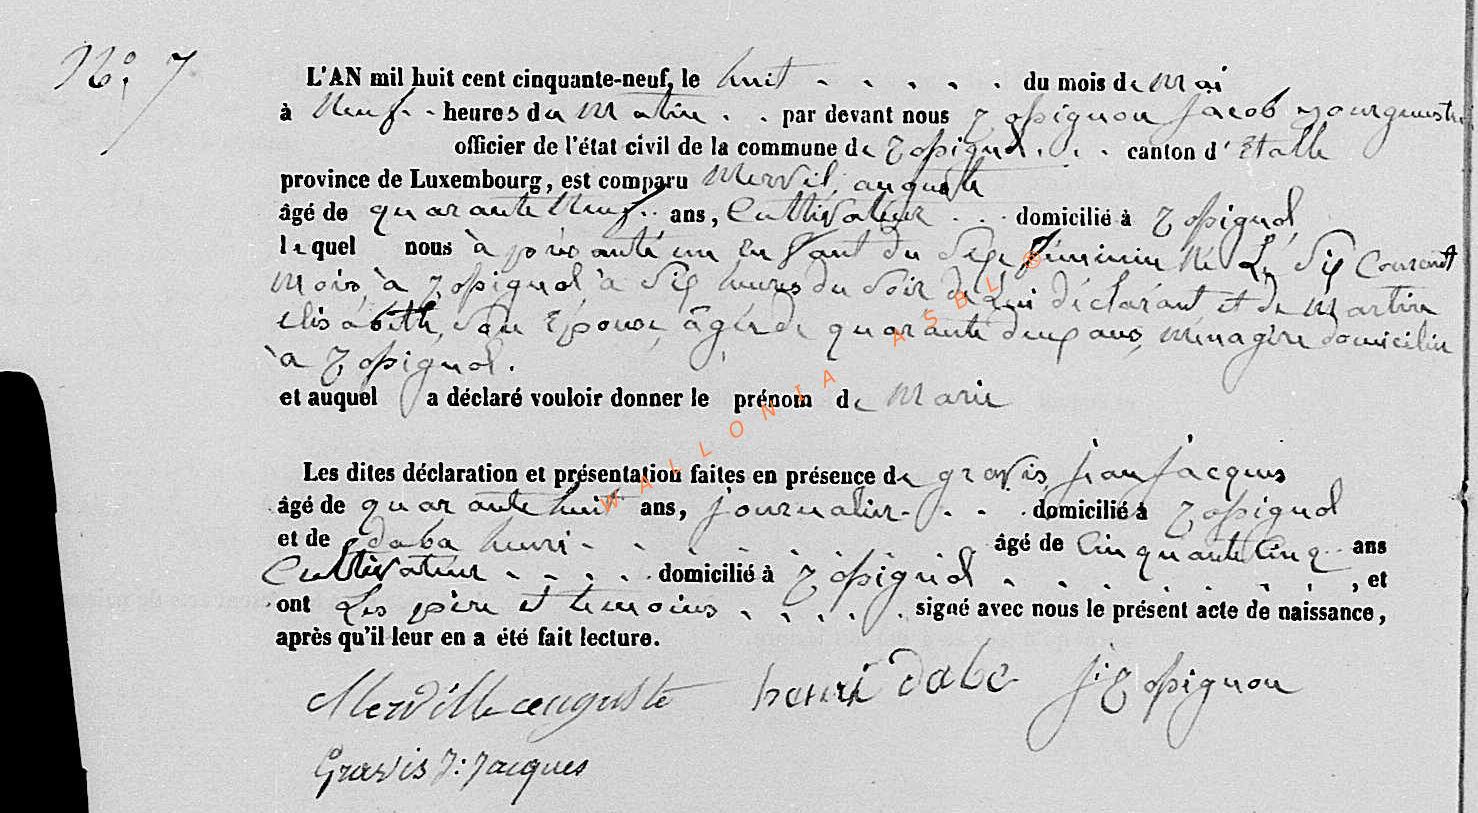 N°. 7
L'AN mil huit cent cinquante-neuf, le huit . . . . . du mois de Mai
à Neuf . heures du Matin . . par devant nous Jopignon Jacob Bourgmestre
officier de l'état civil de la commune de Jopignol . . . canton d'Etalle
province de Luxembourg, est comparu Mervil, auguste
âgé de quarante Neuf .. ans, Cultivateur . . . domicilié à Jopignol,
lequel nous à présanté un Enfant du Sexe féminin Né Le Six Courant
Mois à Jopignol à Six heures du Soir de Lui déclarant et de Martin
elisabéth, son Epouse, âgée de quarante deux ans, ménagère domiciliée
à Jopignol.
et auquel a déclaré vouloir donner le prénom de Marie
Les dites déclaration et présentation faites en présence de gravis jean jacques
âgé de quarante huit ans, journalier . . . domicilié à Jopignol
et de daba henri . . . . . . . âgé de Cinquante Cinq . ans
Cultivateur . . . . domicilié à Jopignol . . . . . . . , et
ont Les père et temoins . . . . signé avec nous le présent acte de naissance,
après qu'il leur en a été fait lecture.
Merville auguste henri dabe j. Jopignon
Gravis J: Jacques
WALLONIA ASBL ®